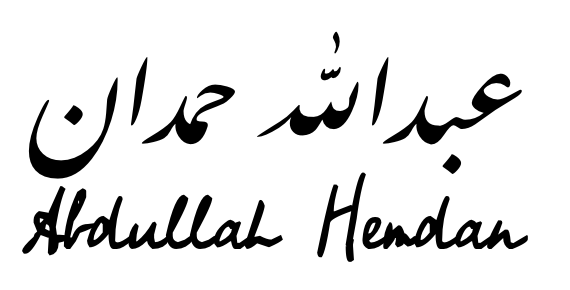 عبدالله حمدان
Abdullah Hemdan